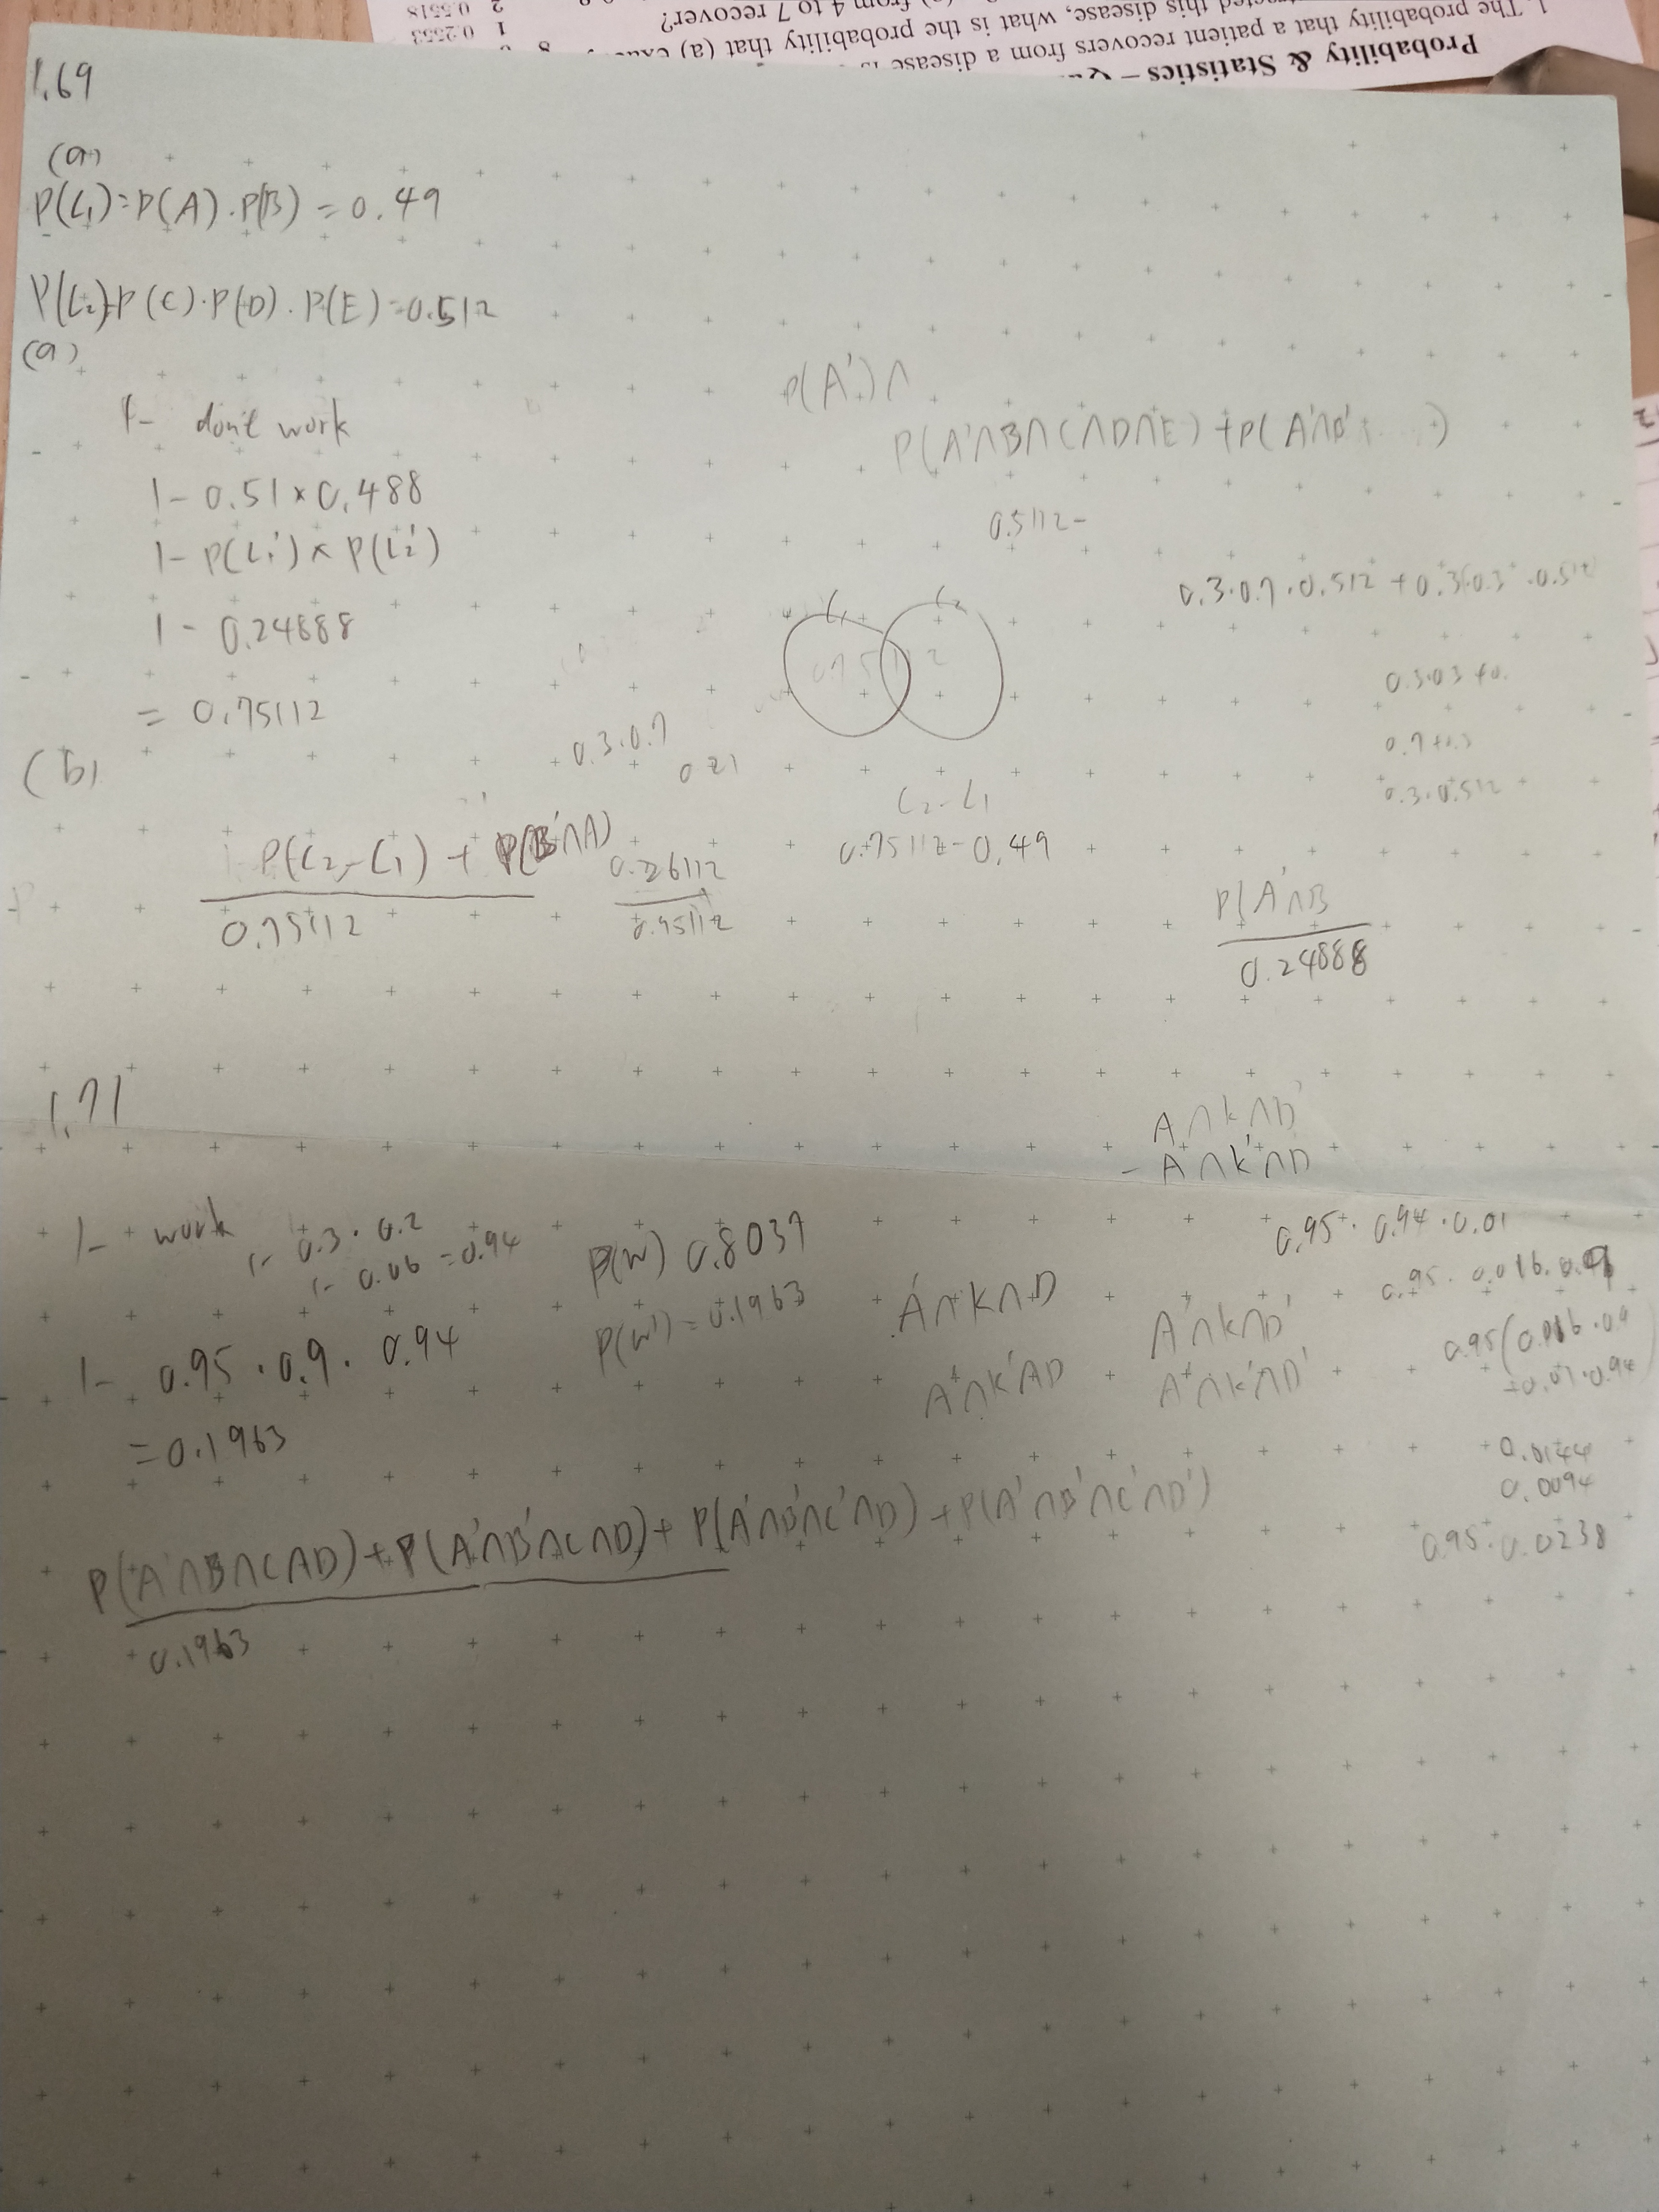 Probability & Statistics –
1. The probability that a patient recovers from a disease is
this disease, what is the probability that (a)
from 4 to 7 recover?
1 0.2553
2 0.5518
1.69
(a)
P(L₁)=P(A).P(B) = 0.49
P(L₂)=P(C).P(D).P(E)=0.512
(a)
1- don't work
1-0.51×0.488
1-P(L₁')×P(L₂')
1-0.24888
= 0.75112
P(A')∩
P(A'∩B∩C∩D∩E)+P(A'∩B'
0.5112-
0.3.0.7.0.512+0.3.0.3.0.512
L₁ L₂
0.3.0.7
0.21
0.3.0.512
L₂-L₁
0.75112-0.49
(b)
P(L₂-L₁)+P(B'∩A)
0.75112
0.26112
0.75112
P(A'∩B
0.24888
1.71
A∩K∩D'
- A∩K'∩D
1- work
1-0.3.0.2
1-0.06=0.94
P(W) 0.8037
P(W')=0.1963
0.95.0.94.0.01
1-0.95.0.9.0.94
=0.1963
A'∩K∩D
A'∩K∩D'
A'∩K'∩D
A'∩K'∩D'
0.0144
0.0094
0.95.0.0238
P(A'∩B∩C∩D)+P(A'∩B'∩C∩D)+P(A'∩B'∩C'∩D)+P(A'∩B'∩C'∩D')
0.1963